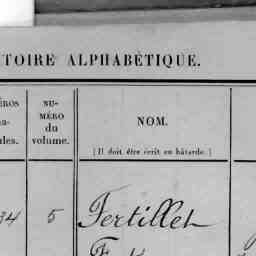 TOIRE ALPHABÉTIQUE.
NU-
MÉRO
du
volume.
NOM.
(Il doit être écrit en bâtarde.)
34 5 Fertillet